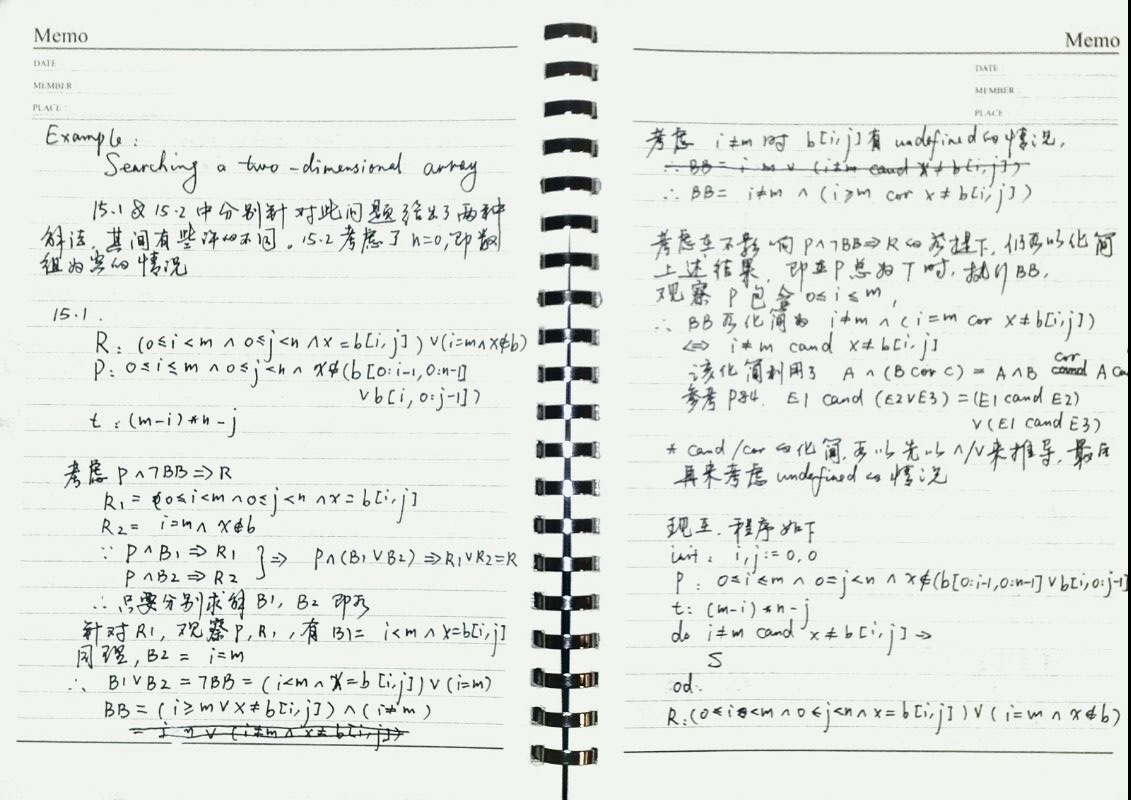 Memo
DATE :
MEMBER
PLACE :
Example:
Searching a two-dimensional array
15.1 & 15.2 中分别针对此问题给出了两种
解法, 其间有些许的不同。15.2 考虑了 n=0, 即数
组为空的情况
15.1.
R: (0≤i<m ∧ 0≤j<n ∧ x=b[i,j]) ∨ (i=m ∧ x∉b)
P: 0≤i≤m ∧ 0≤j<n ∧ x∉(b[0:i-1, 0:n-1]
∨ b[i, 0:j-1])
t: (m-i)*n-j
考虑 P∧¬BB ⇒ R
R1 = 0≤i<m ∧ 0≤j<n ∧ x=b[i,j]
R2 = i=m ∧ x∉b
∵ P∧B1 ⇒ R1 } ⇒ P∧(B1∨B2) ⇒ R1∨R2=R
P∧B2 ⇒ R2
∴ 只要分别求解 B1, B2 即可
针对 R1, 观察 P, R1, 有 B1= i<m ∧ x=b[i,j]
同理, B2 = i=m
∴ B1∨B2 = ¬BB = (i<m ∧ x=b[i,j]) ∨ (i=m)
BB = (i≥m ∨ x≠b[i,j]) ∧ (i≠m)
= i m ∨ (i≠m ∧ x≠b[i,j])
Memo
DATE :
MEMBER :
PLACE :
考虑 i≠m 时 b[i,j] 有 undefined 的情况,
∴ BB = i m ∨ (i≠m cand x≠b[i,j])
∴ BB= i≠m ∧ (i≥m cor x≠b[i,j])
考虑在不影响 P∧¬BB⇒R 的前提下, 仍可以化简
上述结果, 即在P总为T时, 执行BB,
观察 P 包含 0≤i≤m,
∴ BB 可化简为 i≠m ∧ (i=m cor x≠b[i,j])
⇔ i≠m cand x≠b[i,j]
该化简利用了 A∧(B cor C) = A∧B cor A
参考 P84. E1 cand (E2∨E3) = (E1 cand E2)
∨ (E1 cand E3)
* cand/cor 的化简, 可以先以 ∧/∨ 来推导, 最后
再来考虑 undefined 的情况
现在, 程序如下
init: i,j := 0,0
P: 0≤i≤m ∧ 0≤j<n ∧ x∉(b[0:i-1,0:n-1] ∨ b[i,0:j-1]
t: (m-i)*n-j
do i≠m cand x≠b[i,j] →
S
od.
R: (0≤i<m ∧ 0≤j<n ∧ x=b[i,j]) ∨ (i=m ∧ x∉b)